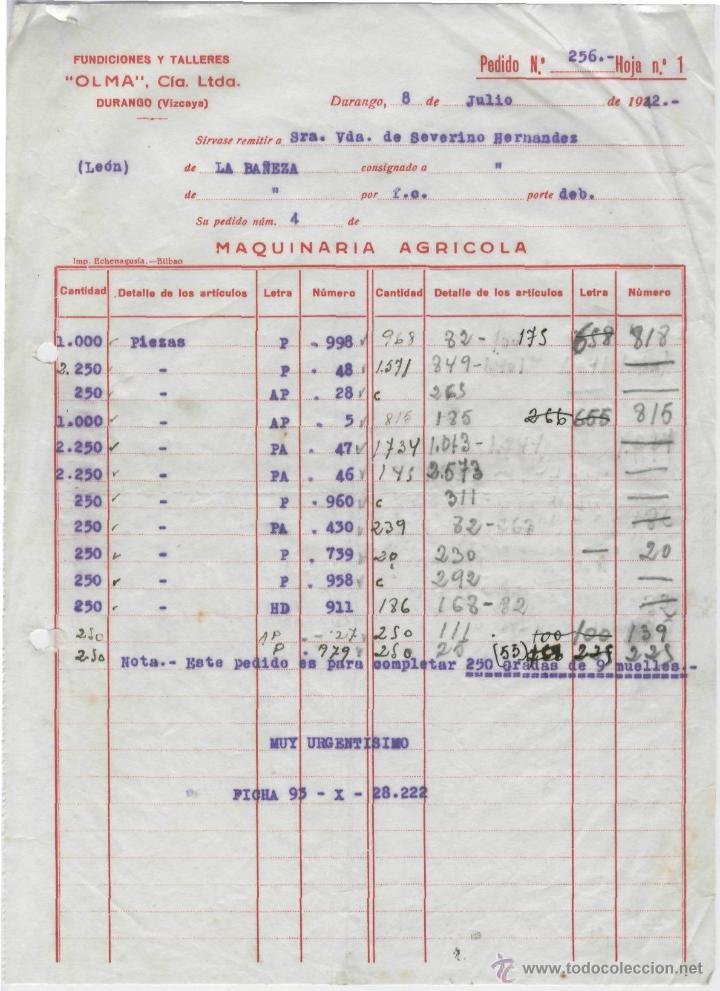 FUNDICIONES Y TALLERES
"OLMA", Cía. Ltda.
DURANGO (Vizcaya)
Pedido N.º 256.- Hoja n.º 1
Durango, 8 de Julio de 1942.-
Sírvase remitir a Sra. Vda. de Severino Hernandez
(León) de LA BAÑEZA consignado a "
de " por f.c. porte deb.
Su pedido núm. 4 de
MAQUINARIA AGRICOLA
Imp. Echenagusía.—Bilbao
Cantidad Detalle de los artículos Letra Número Cantidad Detalle de los artículos Letra Número
1.000 Piezas P . 998 968 82- 175 658 818
2.250 - P . 48 1.571 849- —
250 - AP . 28 c 265 —
1.000 - AP . 5 815 185 266 655 815
2.250 - PA . 47 1734 1.013- —
2.250 - PA . 46 145 2.573 —
250 - P . 960 c 311 —
250 - PA . 430 239 82-263
250 - P . 739 20 230 — 20
250 - P . 958 c 292 —
250 - HD 911 186 168-82
250 AP - 27 250 111 100 100 139
250 P . 979 250 25 (53) 225 225
Nota.- Este pedido es para completar 250 gradas de 9 muelles.-
MUY URGENTISIMO
FICHA 93 - X - 28.222
www.todocoleccion.net